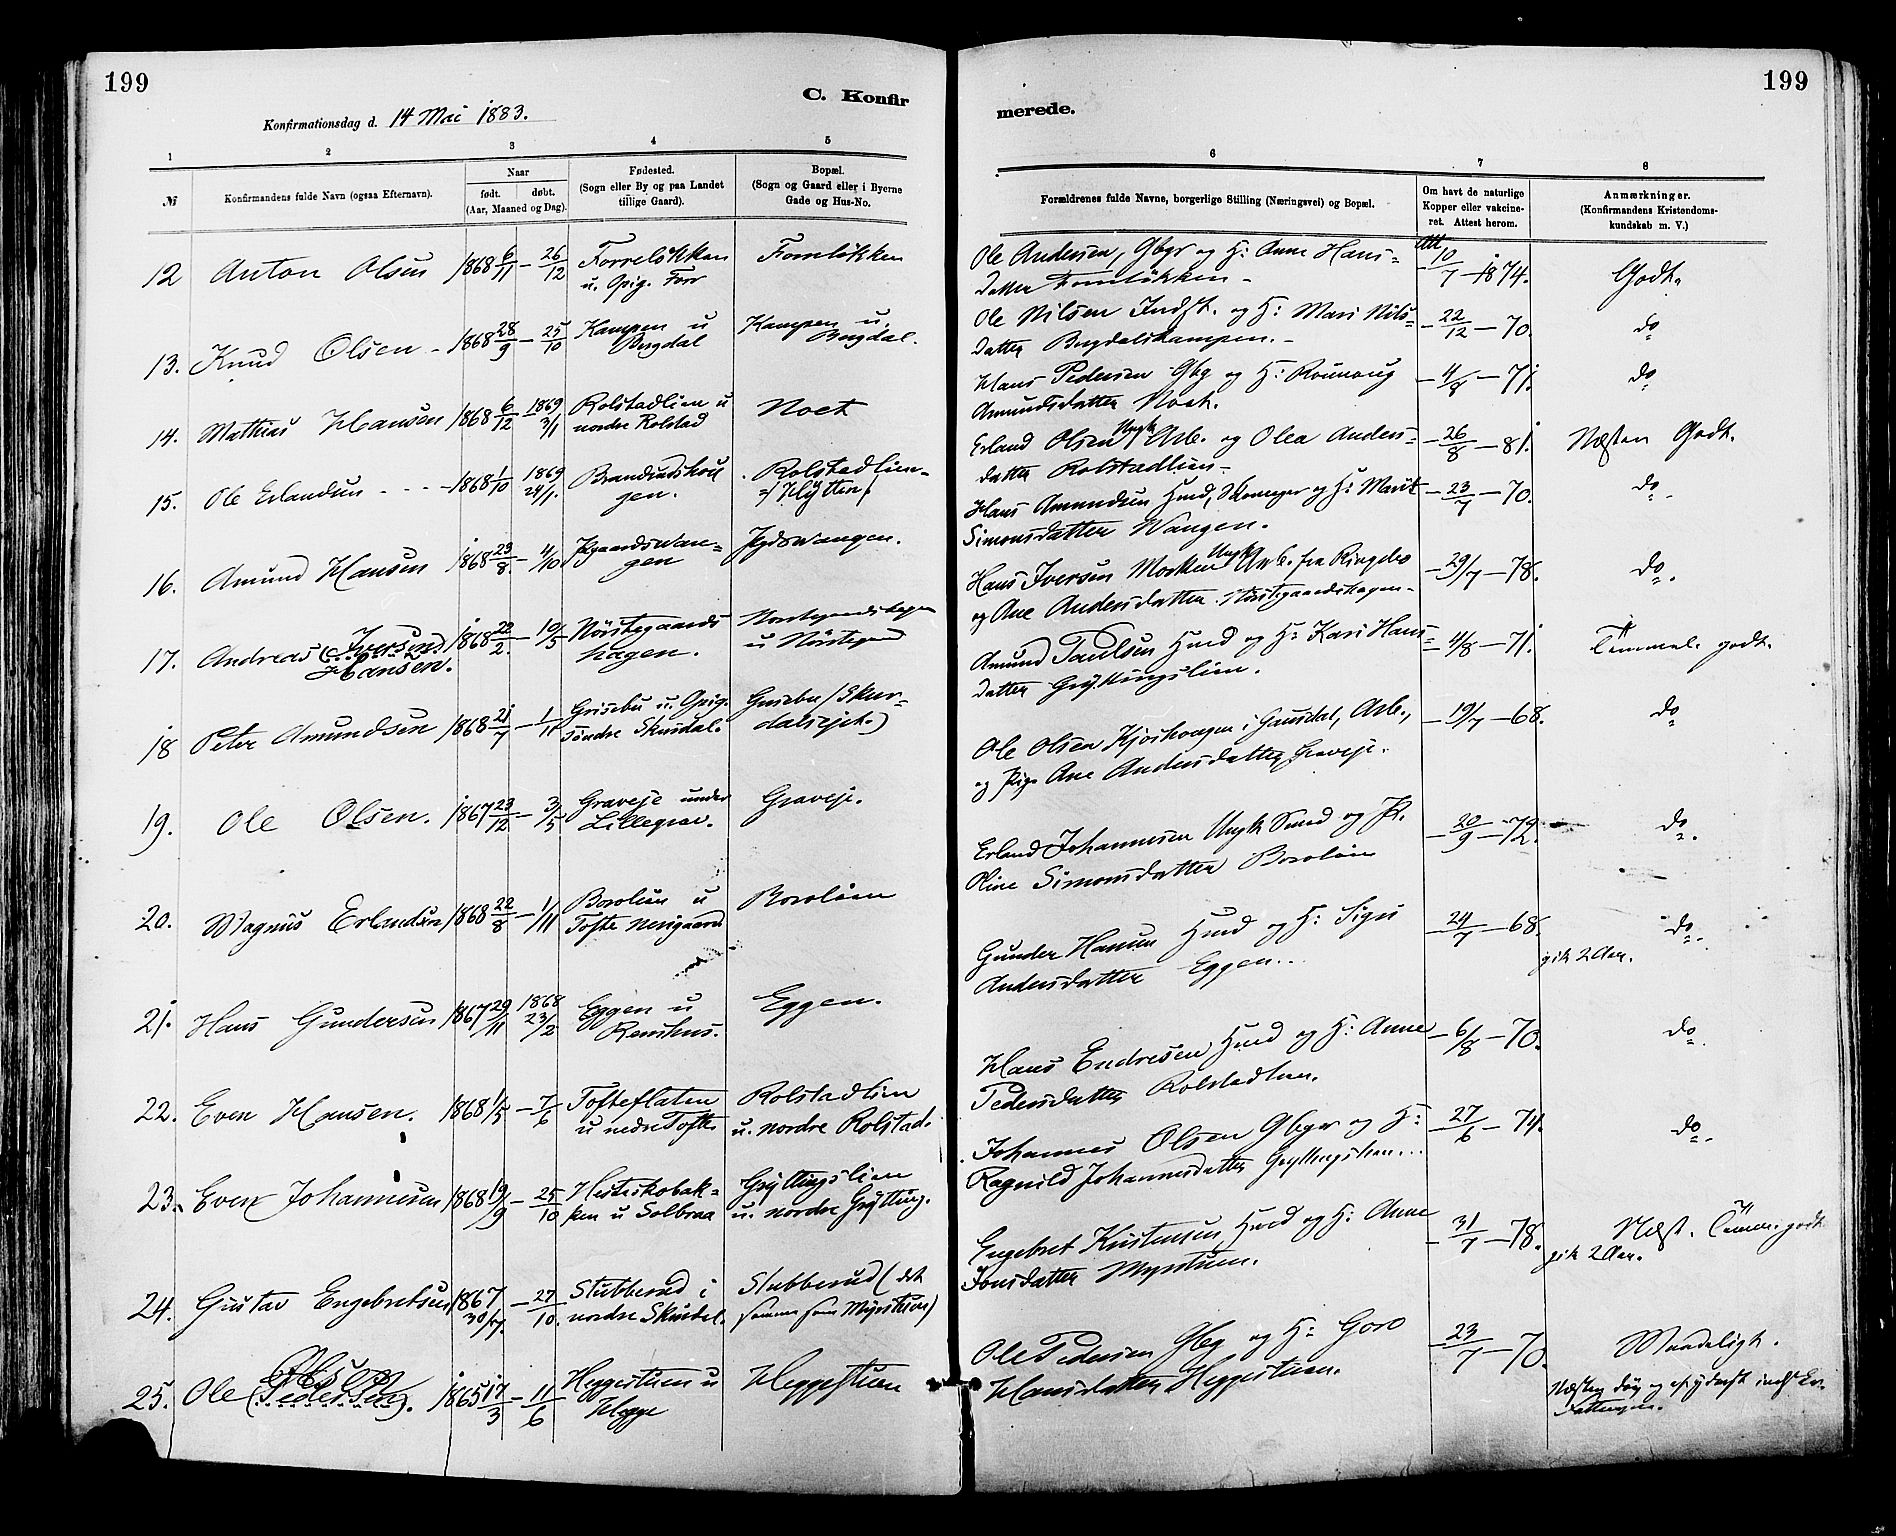 199
C. Konfir
Konfirmationsdag d. 14 Mai 1883.
1 2 3 4 5
№
Konfirmandens fulde Navn (ogsaa Efternavn).
Naar
født. døbt.
(Aar, Maaned og Dag).
Fødested.
(Sogn eller By og paa Landet
tillige Gaard).
Bopæl.
(Sogn og Gaard eller i Byerne
Gade og Hus-No.
12 Anton Olsen 1868 6/11 - 26/12
u. Opig. Forr
13. Knud Olsen - 1868 28/9 - 25/10 Kampen u Kampen u.
14. Mathias Hansen 1868 6/12 1869 3/1 Rolstadlien u Noet
nordre Rolstad
15. Ole Erlandsen - - - 1868 1/10 1869 24/1. Rolstadlien
gen. Hytten
16. Amund Hansen 1868 23/8. - 4/10
gen
17. Andreas (Iversen) 1868 22/2. - 10/5 Nørstegaards
Hansen. hagen. u Nørstegaard
18 Peter Amundsen 1868 21/7 - 1/11 Grisebu u. Opig.
søndre Skurdal.
19. Ole Olsen. 1867 23/12 - 3/5 Graveje under Graveje.
Lillegrav.
20. Magnus Erlandsen 1868 22/8 - 1/11 Borolien u Boroløm
Tofte
21. Hans Gundersen 1867 29/11 1868 23/2 Eggen u Eggen.
22. Even Hansen. 1868 1/5 - 7/6 Tofteflaten Rolstadlien
u nedre Tofte u. nordre Rolstad.
23. Even Johannesen 1868 19/9 - 25/10 Hesteskobak- Gryttingslien
ken u Solbraa u. nordre Grytting.
24. Gustav Engebretsen 1867 30/7. - 27/10. Stubberud i Stubberud (det
nordre Skurdal. samme som Myrstuen)
Olsen
25. Ole (Pedersen). 1865 17/3 - 11/6 Heggestuen u Heggestuen
Hegge
199
merede.
6 7 8
Forældrenes fulde Navne, borgerlige Stilling (Næringsvei) og Bopæl.
Om havt de naturlige
Kopper eller vakcine-
ret. Attest herom.
Anmærkninger.
(Konfirmandens Kristendoms-
kundskab m. V.)
Ole Andersen, Gbgr og H: Anne Hans- Att 10/7 - 1874. Godt.
datter
Ole Nilsen Indst. og H: Mari Nils- - 22/12 - 70. do
datter
Hans Pedersen Gbg og H: Rønnaug - 4/8 - 71. do
Amundsdatter Noet.
Erland Olsen Ungk Arb. og Olea Anders- - 26/8 - 81. Næsten Godt.
datter Rolstadlien
Hans Amundsen Husd, og H: Marit - 23/7 - 70. do
Simonsdatter Wangen.
Hans Iversen Moeken Ungk Arb. fra Ringebo - 29/7 - 78. do
og Ane Andersdatter Nørstegaardshagen.
Amund Paulsen Husd og H: Kari Hans - 4/8 - 71. Temmel. godt.
datter Gryttingslien.
Ole Olsen i Gausdal, Arb., - 19/7 - 68. do
og Pige Ane Andersdatter Graveje.
Erland Johannesen Ungk Smed og P. - 20/9 - 72. do
Oline Simonsdatter Boroløm
Gunder Hansen Husd og H: Sigri - 24/7 - 68. do
Andersdatter Eggen. gik 2 Aar.
Hans Endresen Husd og H: Anne - 6/8 - 70. do
Pedersdatter Rolstadlien.
Johannes Olsen Gbgr og H: - 27/6 - 74. do
Ragnild Johannesdatter Gryttingslien.
Engebret Kristensen Husd og H: Anne - 31/7 - 78. Næst. Temm. godt
Jonsdatter Myrstuen. gik 2 Aar.
Ole Pedersen Gbg og H: Goro 23/7 - 70. Maadeligt.
Hansdatter Heggestuen. Næsten døv og